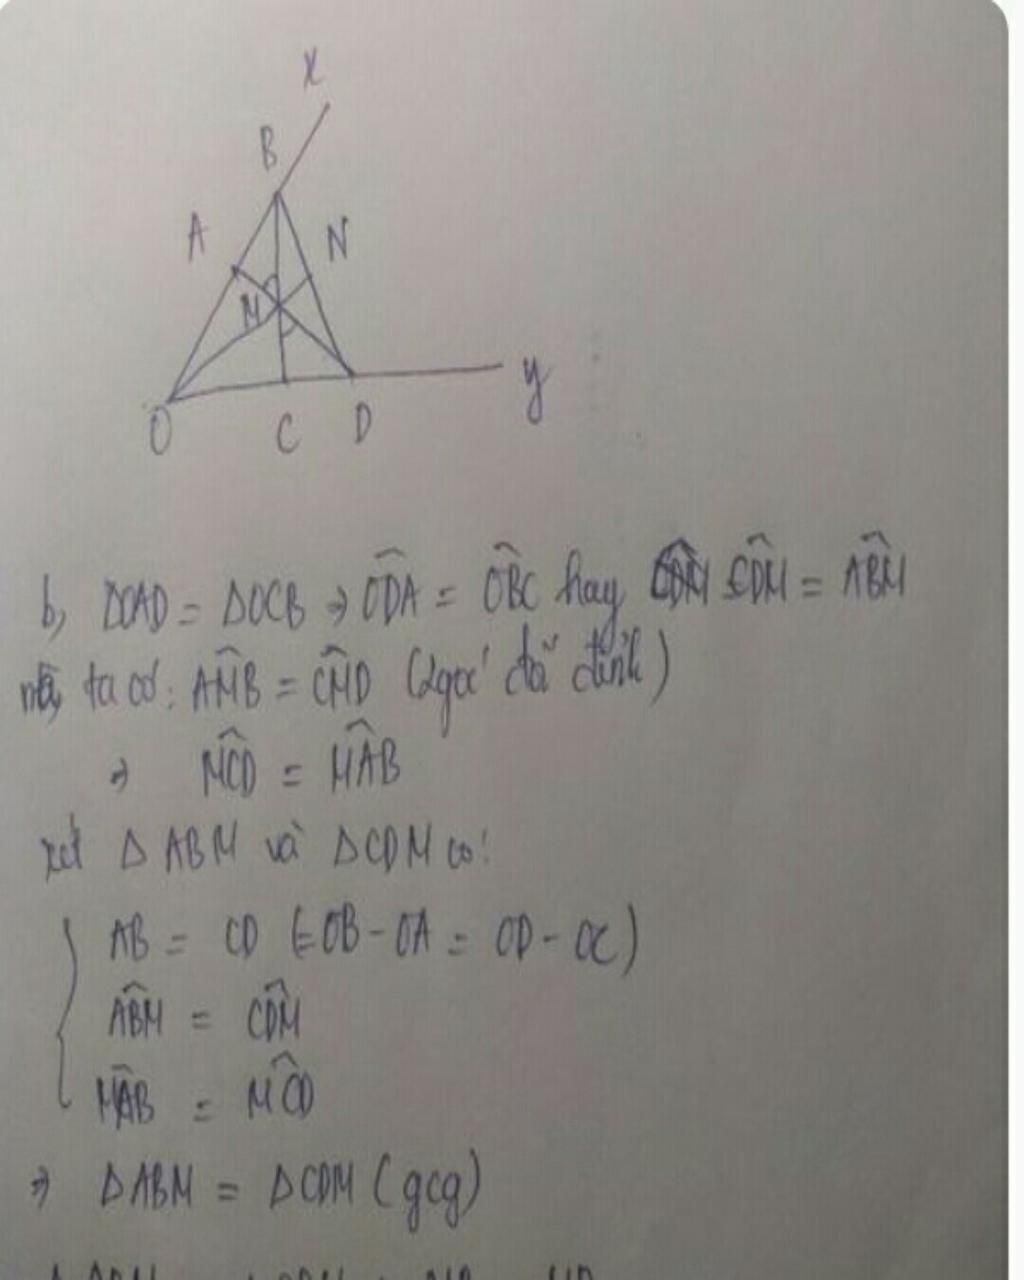 x
B
A
N
M
y
O
C
D
b, ΔOAD = ΔOCB ⇒ \widehat{ODA} = \widehat{OBC} hay \widehat{CDM} = \widehat{ABM}
ta có: \widehat{AMB} = \widehat{CMD} (2 góc đđ đỉnh)
⇒ \widehat{MCD} = \widehat{MAB}
xét Δ ABM và ΔCDM có:
AB = CD (=OB - OA = OD - OC)
\widehat{ABM} = \widehat{CDM}
\widehat{MAB} = \widehat{MCD}
⇒ ΔABM = ΔCDM (gcg)